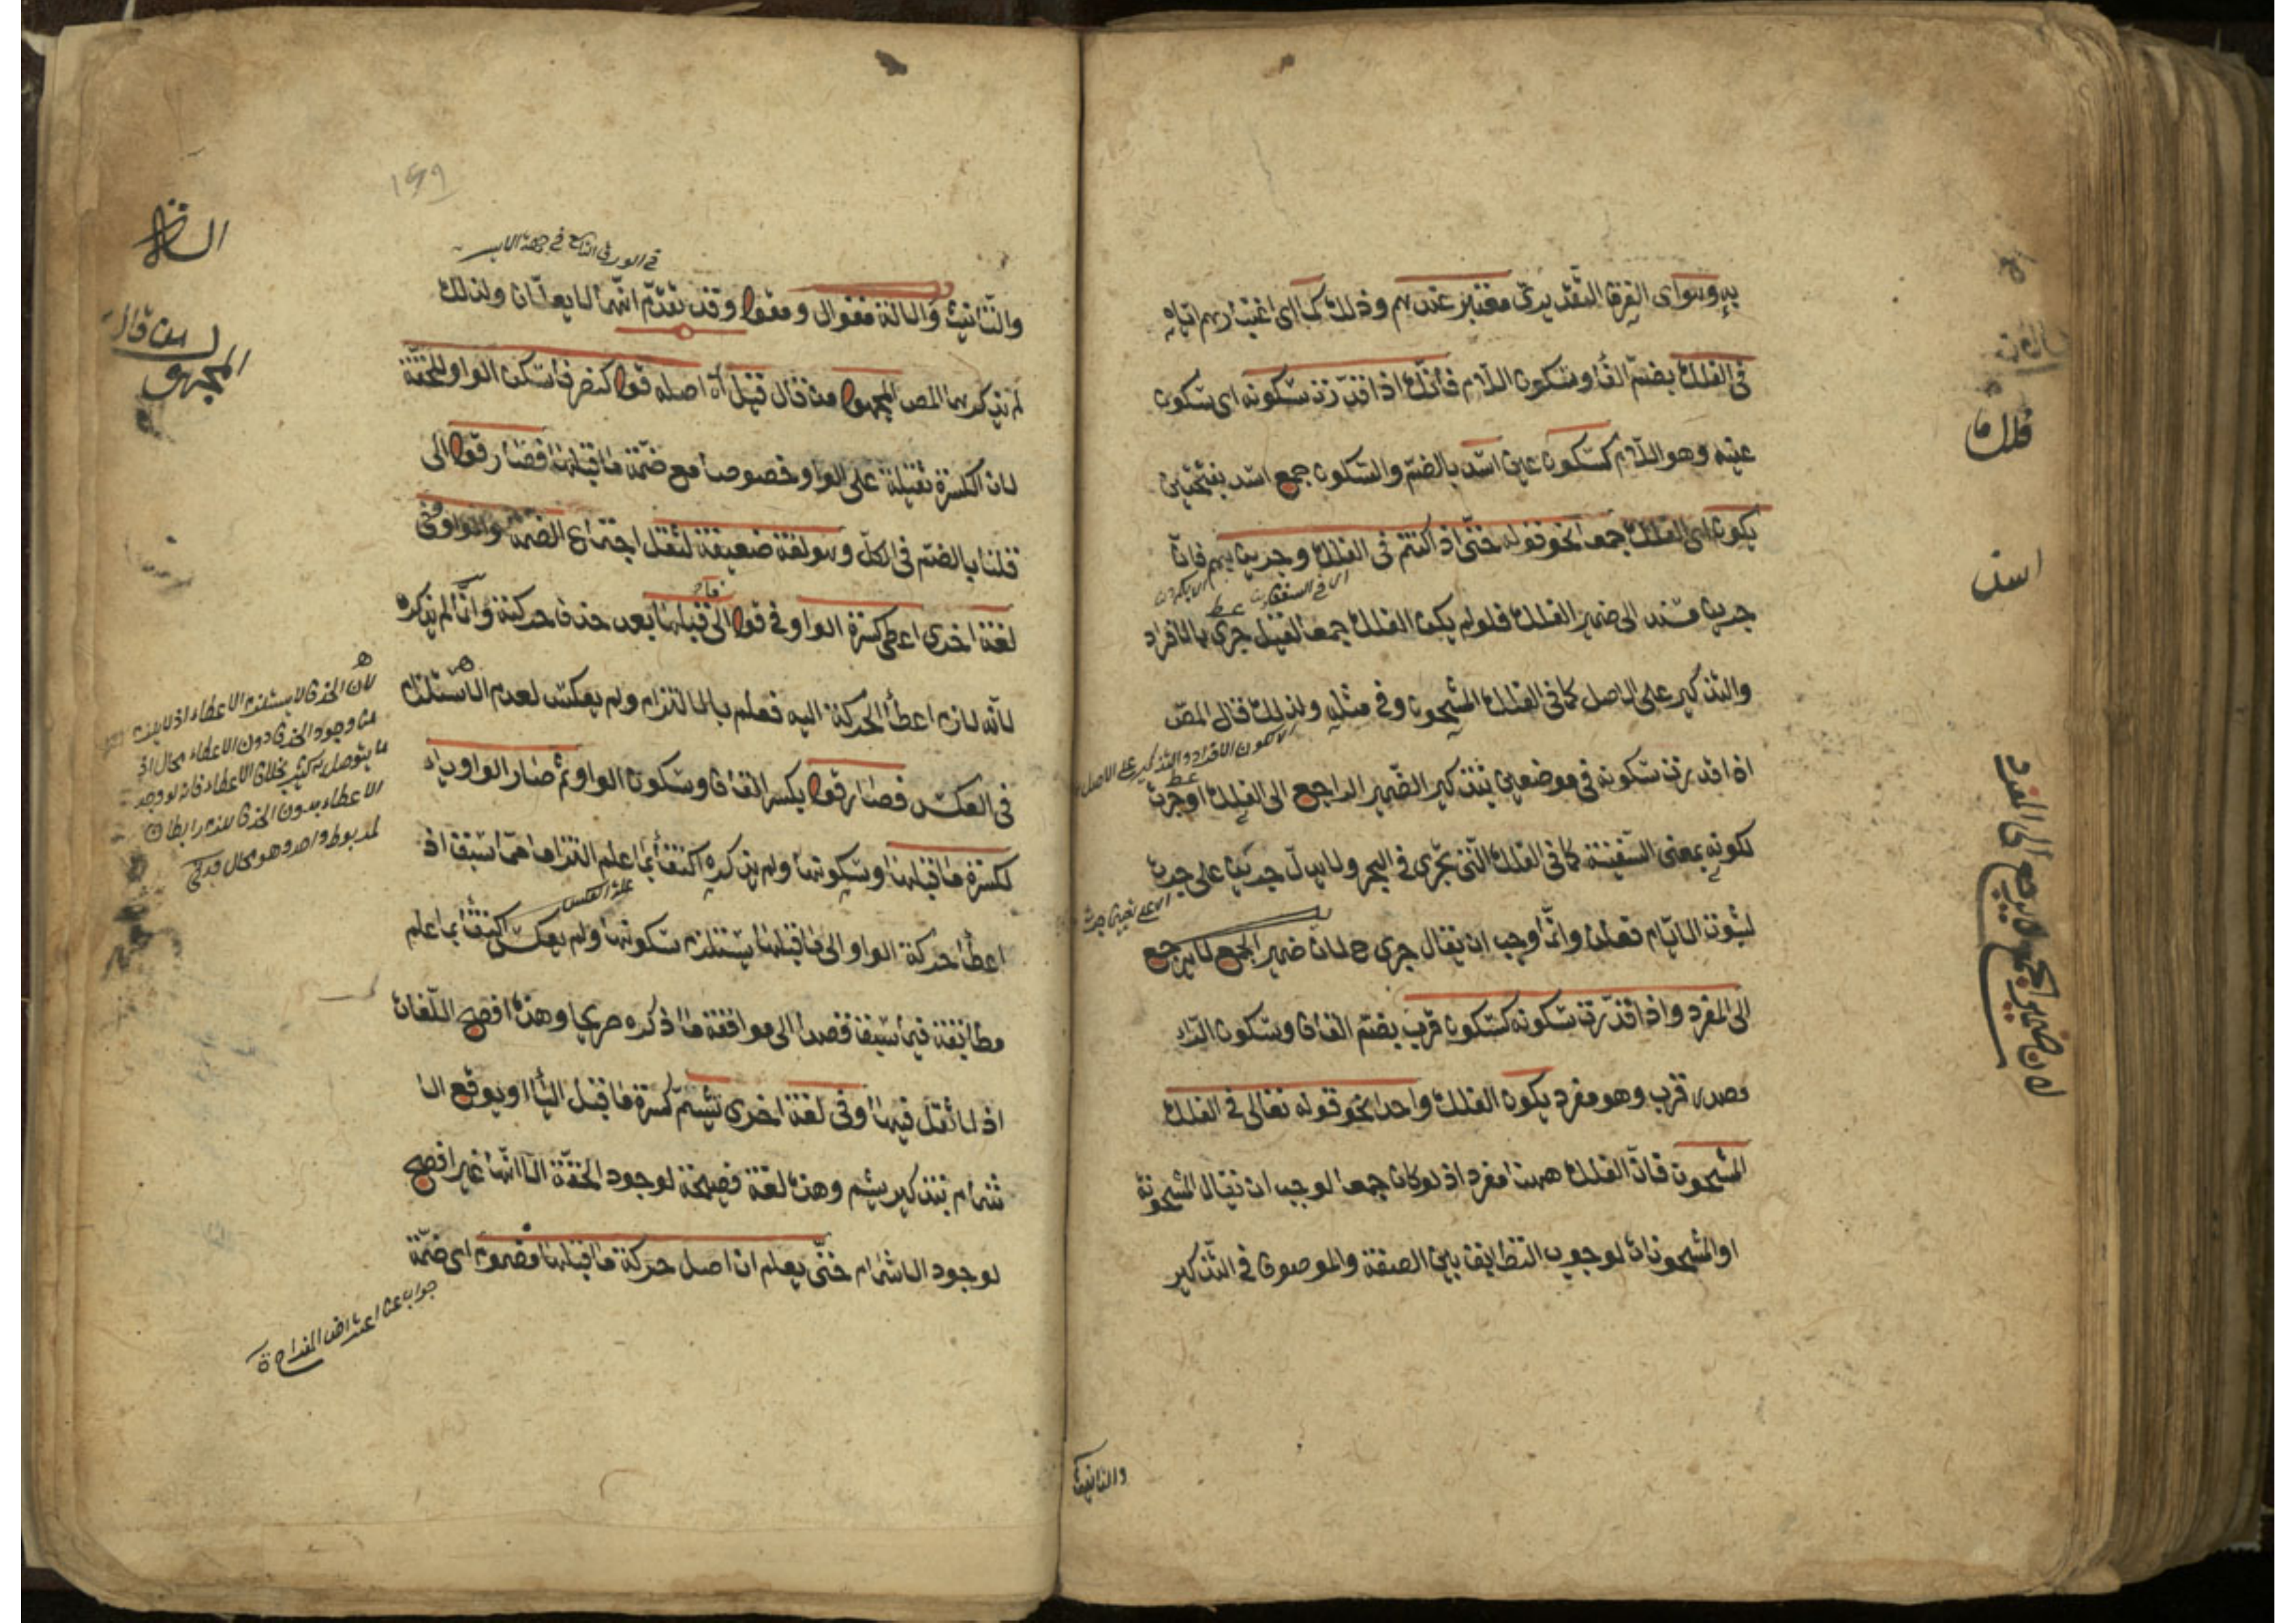 به وهو اى الفرق التقديرى معتبر عندهم وذلك كما اى اعتبارهم اياه
فى الفلك بضم الفاء وسكون اللام فانك اذا قدرت سكونه اى سكون
عينه وهو اللام كسكون عين اسد بالضم والسكون جمع اسد بفتحتين
يكون اى الفلك جمعا نحو قوله حتى اذا كنتم فى الفلك وجرين بهم فان
جرين مسند الى ضمير الفلك فلو لم يكن الفلك جمعا لقيل جرى بالافراد
والتذكير على الاصل كما فى الفلك المشحون وفى مثله ولذلك قال المص
اذا قدرت سكونه فى موضعين بتذكير الضمير الراجع الى الفلك او جرت
لكونه بمعنى السفينة كما فى الفلك التى تجرى فى البحر ولا يدل جرين على جرت
وانما وجب ان يقال جرى ح لان ضمير الجمع لا يرجع
الى المفرد واذا قدرت سكونه كسكون قرب بضم القاف وسكون الراء
مصدر قرب وهو مفرد يكون الفلك واحدا نحو قوله تعالى فى الفلك
المشحون فان الفلك ههنا مفرد اذ لو كان جمعا لوجب ان يقال المشحونة
او المشحونات لوجوب التطابق بين الصفة والموصوف فى التذكير
والتانيث
فلك ما
اسد
لان ضمير الجمع لا يرجع الى المفرد
والتانيث والالة مقوال ومقول وقد تقدم انهما لا يعلان ولذلك
لم يذكرهما المص المجهول من قال قيل أه اصله قول كنصر فاسكن الواو للخفة
لان الكسرة ثقيلة على الواو خصوصا مع ضمة ما قبلها فصار قول الى
قلنا بالضم فى الكل وهو لغة ضعيفة لثقل اجتماع الضمة والواو وفى
لغة اخرى اعطى كسرة الواو فى قول الى ما قبلها بعد حذف حركته وانما لم يذكره
لانه لازم اعطاء الحركة اليه فعلم بالالتزام ولم يعكس لعدم الاستلزام
فى العكس فصار قول بكسر القاف وسكون الواو ثم صار الواو ياء
لكسرة ما قبلها وسكونها ولم يذكره اكتفاء بما علم التزاما مما سبق اذ
اعطاء حركة الواو الى ما قبلها يستلزم سكونها ولم يعكس اكتفاء بما علم
مطابقة فيما سبق قصدا الى موافقة ما ذكره صريحا وهذه افصح اللغات
اذ لا ثقل فيها وفى لغة اخرى تشم كسرة ما قبل الياء او يوقع الا
شمام بتذكير يشم وهذه لغة فصيحة لوجود الخفة الا انها غير افصح
لوجود الاشمام حتى يعلم ان اصل حركة ما قبلها مضموم اى ضمة
المجهول من قال
لان الحذف لا يستلزم الاعطاء اذ لا يلزم
من وجود الحذف دون الاعطاء محال اذ
بخلاف الاعطاء فانه لو وجد
الاعطاء بدون الحذف لزم
علة العكس
جواب عن اعتراض المقدر